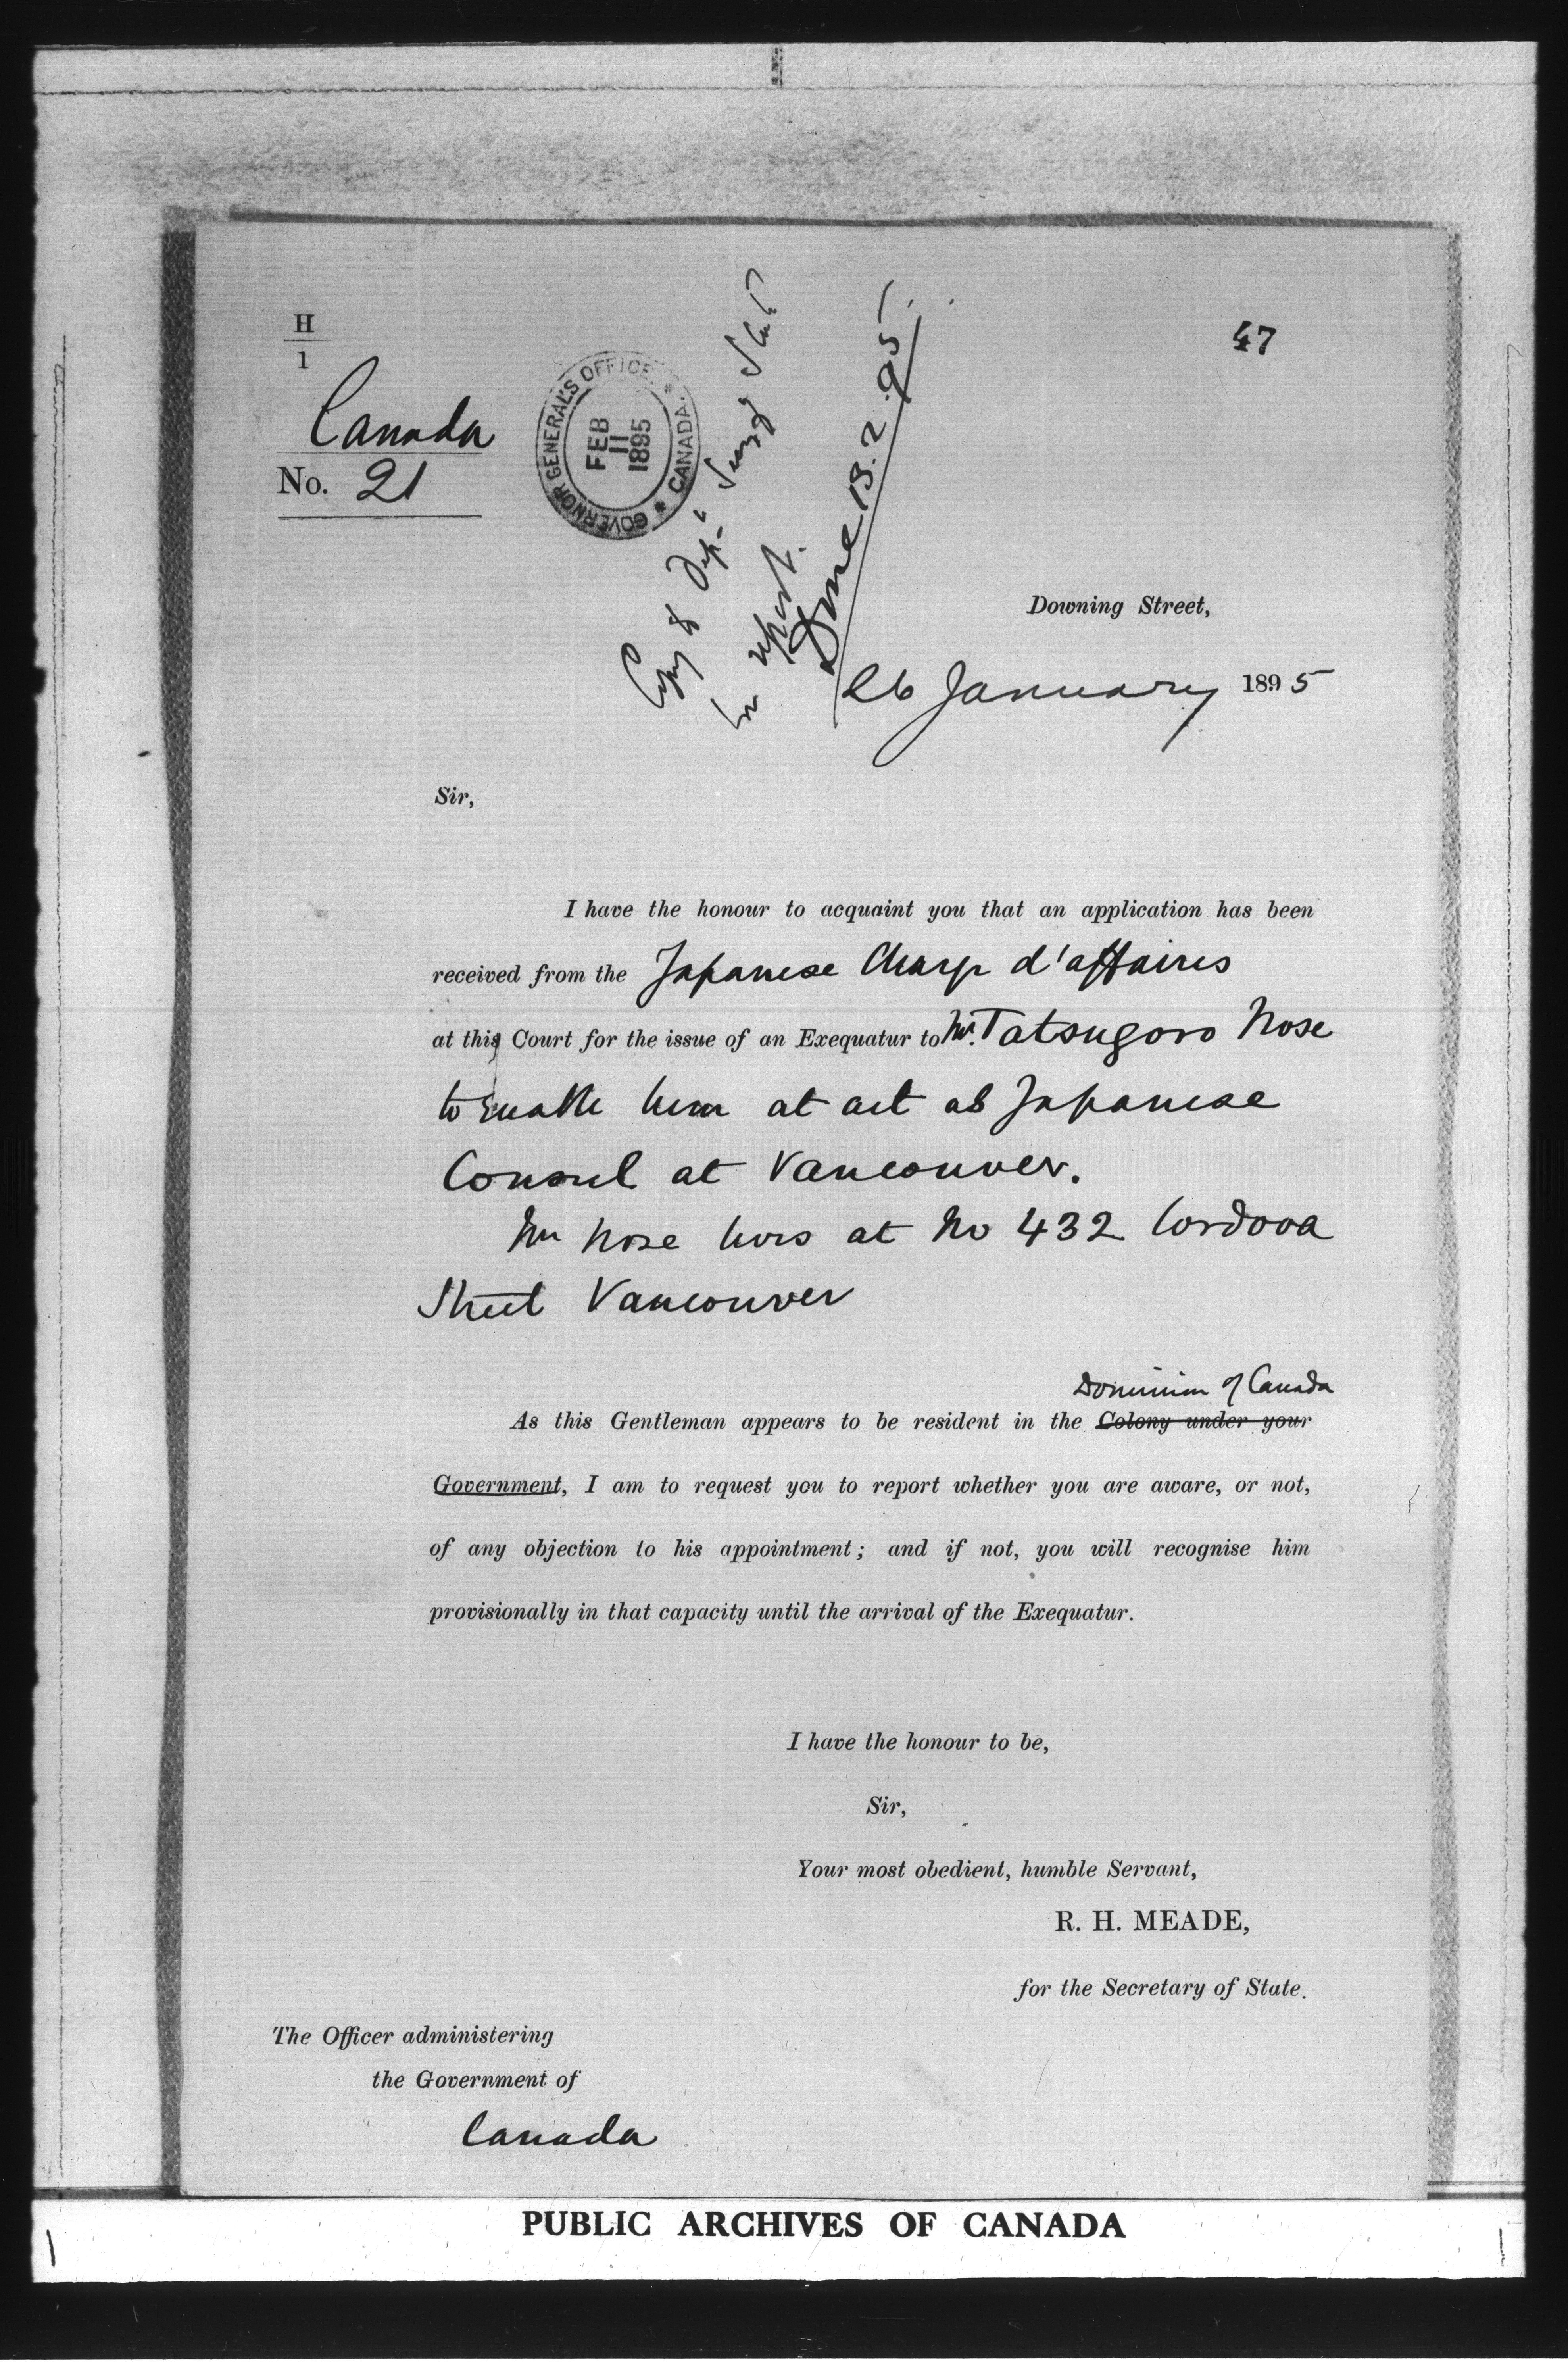 47
H
1
Canada
No. 21
GOVERNOR GENERAL'S OFFICE * CANADA. *
FEB
11
1895
Copy to Dep.
for report.
Done 13.2.95
Downing Street,
26 January 1895
Sir,
I have the honour to acquaint you that an application has been
received from the Japanese Charge d'affaires
at this Court for the issue of an Exequatur to Mr. Tatsugoro Nose
to enable him at act as Japanese
Consul at Vancouver.
Mr Nose lives at No 432 Cordova
Street Vancouver
Dominion of Canada
As this Gentleman appears to be resident in the Colony under your
Government, I am to request you to report whether you are aware, or not,
of any objection to his appointment; and if not, you will recognise him
provisionally in that capacity until the arrival of the Exequatur.
I have the honour to be,
Sir,
Your most obedient, humble Servant,
R. H. MEADE,
for the Secretary of State.
The Officer administering
the Government of
Canada
PUBLIC ARCHIVES OF CANADA